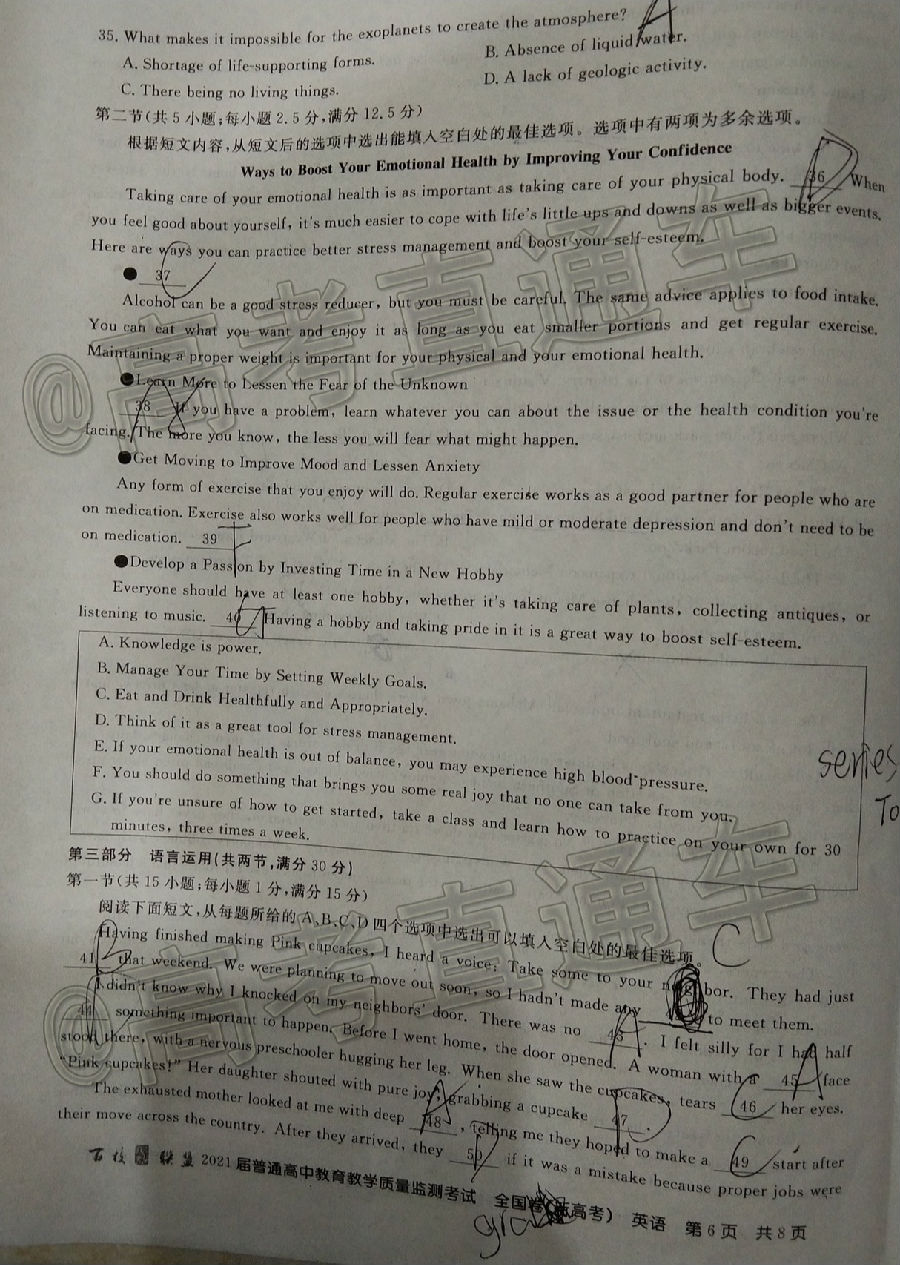 35. What makes it impossible for the exoplanets to create the atmosphere? A
A. Shortage of life-supporting forms. B. Absence of liquid water.
C. There being no living things. D. A lack of geologic activity.
第二节(共5小题;每小题2.5分,满分12.5分)
根据短文内容,从短文后的选项中选出能填入空白处的最佳选项。选项中有两项为多余选项。
Ways to Boost Your Emotional Health by Improving Your Confidence
Taking care of your emotional health is as important as taking care of your physical body. 36 D When
you feel good about yourself, it's much easier to cope with life's little ups and downs as well as bigger events.
Here are ways you can practice better stress management and boost your self-esteem.
● 37 C
Alcohol can be a good stress reducer, but you must be careful. The same advice applies to food intake.
You can eat what you want and enjoy it as long as you eat smaller portions and get regular exercise.
Maintaining a proper weight is important for your physical and your emotional health.
●Learn More to Lessen the Fear of the Unknown
38 A If you have a problem, learn whatever you can about the issue or the health condition you're
facing. The more you know, the less you will fear what might happen.
●Get Moving to Improve Mood and Lessen Anxiety
Any form of exercise that you enjoy will do. Regular exercise works as a good partner for people who are
on medication. Exercise also works well for people who have mild or moderate depression and don't need to be
on medication. 39
●Develop a Passion by Investing Time in a New Hobby
Everyone should have at least one hobby, whether it's taking care of plants, collecting antiques, or
listening to music. 40 Having a hobby and taking pride in it is a great way to boost self-esteem.
A. Knowledge is power.
B. Manage Your Time by Setting Weekly Goals.
C. Eat and Drink Healthfully and Appropriately.
D. Think of it as a great tool for stress management.
E. If your emotional health is out of balance, you may experience high blood pressure.
F. You should do something that brings you some real joy that no one can take from you.
G. If you're unsure of how to get started, take a class and learn how to practice on your own for 30
minutes, three times a week.
series
To
第三部分 语言运用(共两节,满分30分)
第一节(共15小题;每小题1分,满分15分)
阅读下面短文,从每题所给的A、B、C、D四个选项中选出可以填入空白处的最佳选项。
C
Having finished making Pink cupcakes, I heard a voice: Take some to your neighbor. They had just
41 B that weekend. We were planning to move out soon, so I hadn't made any to meet them.
I didn't know why I knocked on my neighbors' door. There was no 43 A. I felt silly for I had half
44 something important to happen. Before I went home, the door opened. A woman with a 45 A face
stood there, with a nervous preschooler hugging her leg. When she saw the cupcakes, tears 46 C her eyes.
"Pink cupcakes!" Her daughter shouted with pure joy, grabbing a cupcake 47 D.
The exhausted mother looked at me with deep 48 A, telling me they hoped to make a 49 C start after
their move across the country. After they arrived, they 50 if it was a mistake because proper jobs were
百校联盟2021届普通高中教育教学质量监测考试 全国卷(新高考) 英语 第6页 共8页
@高考直通车
@高考直通车